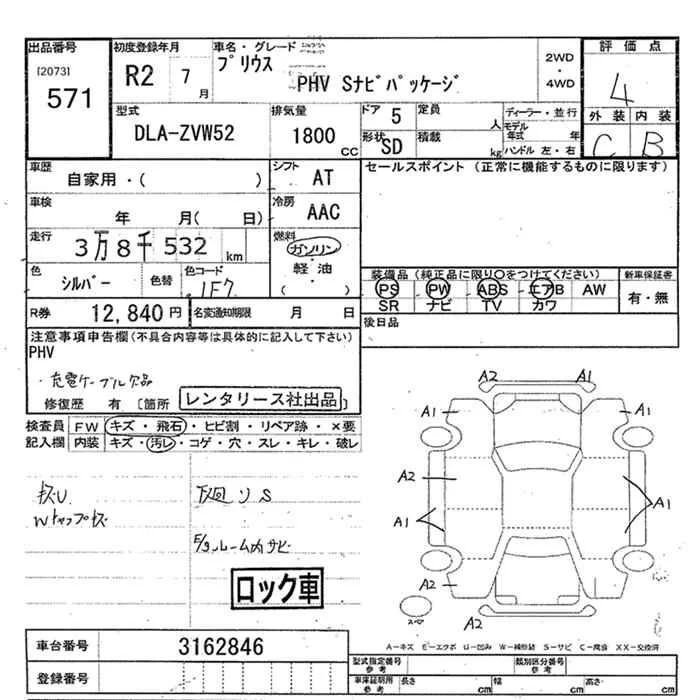 出品番号 初度登録年月 車名・グレード 評価点
[2073] R2 7月 プリウス 2WD
571 PHV Sナビパッケージ ・ 4WD 4
型式 排気量 ドア 5 定員 人 ディーラー・並行 外装 内装
DLA-ZVW52 1800 CC 形状 SD 積載 kg モデル年式 年 ハンドル 左・右 C B
車歴 シフト セールスポイント (正常に機能するものに限ります)
自家用・( ) AT
車検 冷房
年 月( 日) AAC
走行 燃料
3万8千532 km ガソリン
色 色替 色コード 軽油 装備品(純正品に限り○をつけてください) 新車保証書
シルバー 1F7 ( ) PS PW ABS エアB AW 有・無
R券 12,840円 名変通知期限 月 日 SR ナビ TV カワ
注意事項申告欄(不具合内容等は具体的に記入して下さい) 後日品
PHV
・充電ケーブル欠品
修復歴 有 [箇所 レンタリース社出品 ]
検査員 FW キズ・飛石・ヒビ割・リペア跡・×要
記入欄 内装 キズ・汚レ・コゲ・穴・スレ・キレ・破レ
A2 A1
A1 A1
A2
A1 A1
A2
A2
下回りS
ルーム内サビ
ロック車
車台番号 3162846
登録番号
A-キズ E-エクボ U-凹み W-補修跡 S-サビ C-腐食 XX-交換済
型式指定番号 参考 類別区分番号 参考
車庫証明用 参考 長さ cm 幅 cm 高さ cm